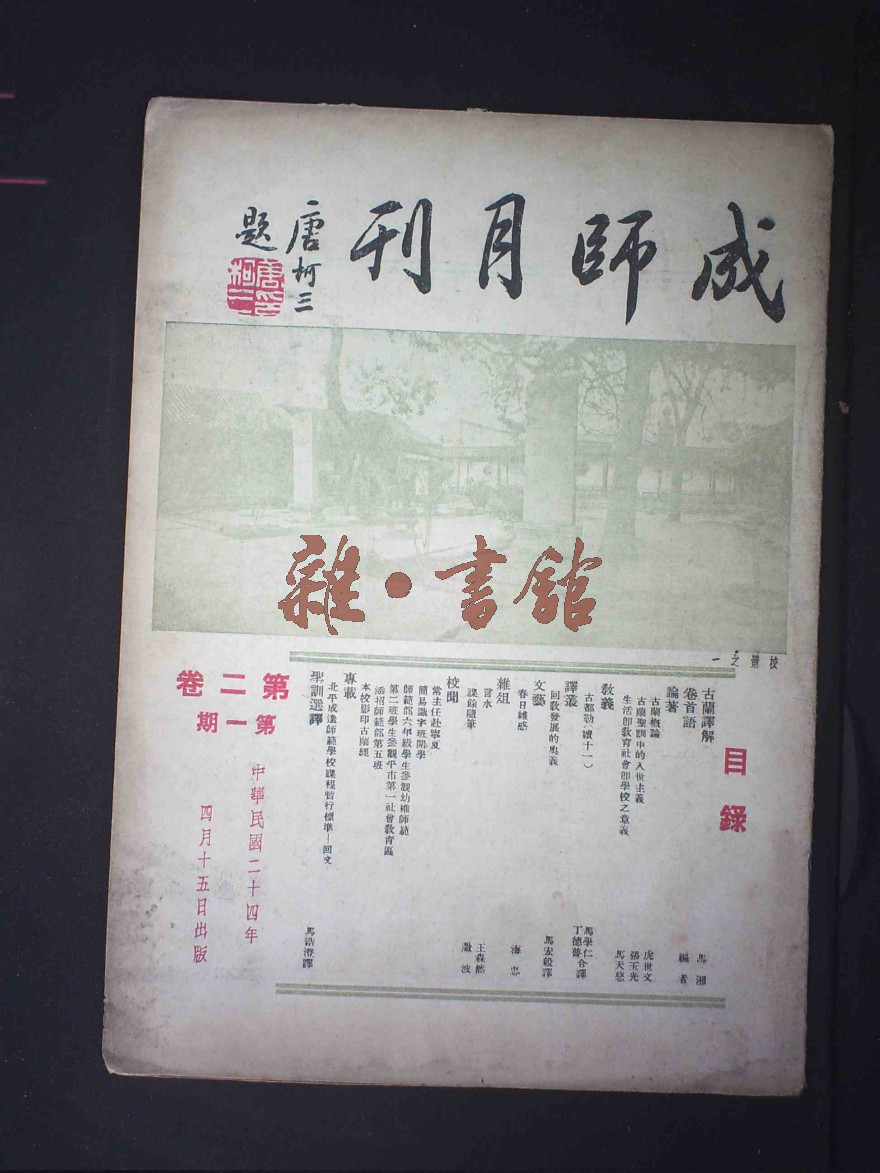 成師月刊
唐柯三
題
唐柯三印
雜·書館
校景之一
目錄
古蘭譯解 馬湘
卷首語 編者
論著
古蘭概論 虎世文
古蘭聖訓中的入世主義 張玉光
生活即教育社會即學校之意義 馬天慈
教義
古都勒(續十一) 馬學仁 丁德普合譯
譯叢
回教發展的奧義 馬宏毅譯
文藝
春日雜感 海忠
雜俎
言水 王森然
課餘隨筆 激波
校聞
常主任赴寧夏
簡易識字班開學
師範部六年級學生參觀幼稚師範
第二班學生參觀平市第一社會教育區
添招師範部第五班
本校影印古蘭經
專載
北平成達師範學校課程暫行標準—回文
聖訓選譯 馬浩澄譯
第二卷
第一期
中華民國二十四年
四月十五日出版